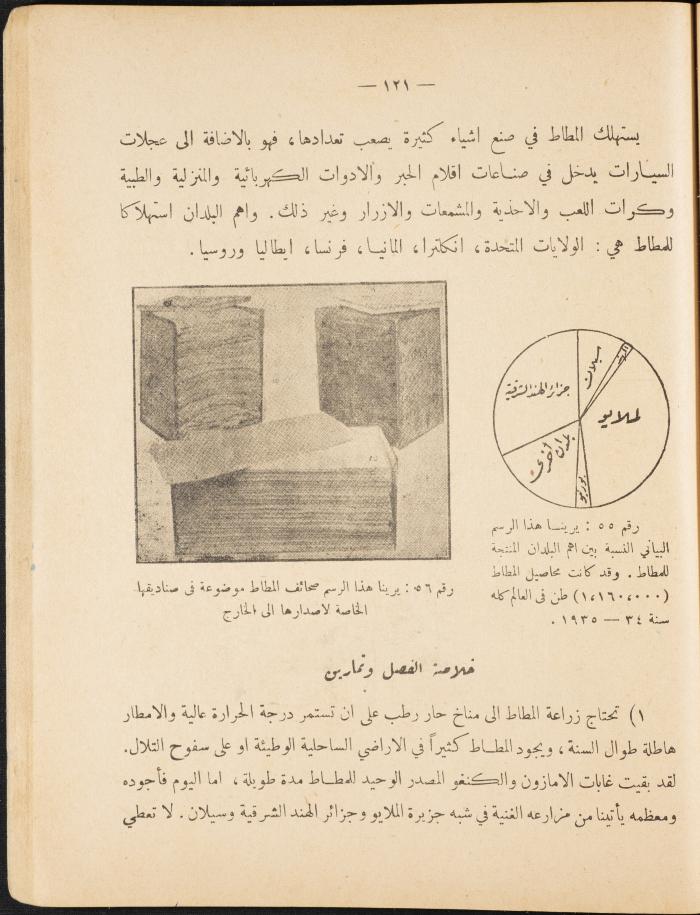 — ١٢١ —
يستهلك المطاط في صنع اشياء كثيرة يصعب تعدادها، فهو بالاضافة الى عجلات
السيارات يدخل في صناعات اقلام الحبر والادوات الكهربائية والمنزلية والطبية
وكرات اللعب والاحذية والمشمعات والازرار وغير ذلك. واهم البلدان استهلاكا
للمطاط هي : الولايات المتحدة، انكلترا، المانيا، فرنسا، ايطاليا وروسيا.
الهند
سيلان
جزائر الهند الشرقية
ملايو
بلدان اخرى
بورنيو
رقم ٥٥ : يرينا هذا الرسم
البياني النسبة بين اهم البلدان المنتجة
للمطاط. وقد كانت محاصيل المطاط
(١،١٦٠،٠٠٠) طن في العالم كله
سنة ٣٤ — ١٩٣٥.
رقم ٥٦ : يرينا هذا الرسم صحائف المطاط موضوعة في صناديقها
الخاصة لاصدارها الى الخارج
خلاصة الفصل وتمارين
١) تحتاج زراعة المطاط الى مناخ حار رطب على ان تستمر درجة الحرارة عالية والامطار
هاطلة طوال السنة، ويجود المطاط كثيراً في الاراضي الساحلية الوطيئة او على سفوح التلال.
لقد بقيت غابات الامازون والكنغو المصدر الوحيد للمطاط مدة طويلة، اما اليوم فأجوده
ومعظمه يأتينا من مزارعه الغنية في شبه جزيرة الملايو وجزائر الهند الشرقية وسيلان. لا تعطي